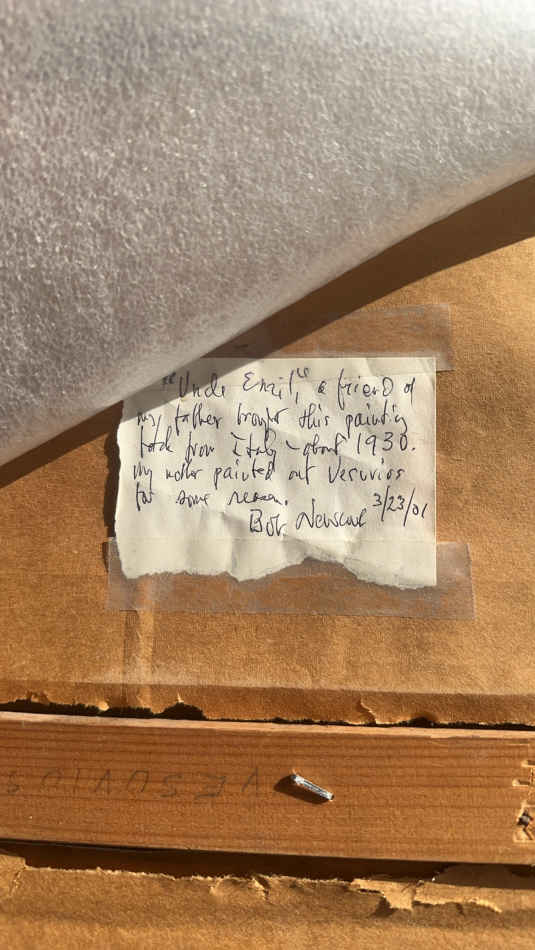 "Uncle Emil", a friend of
my father brought this painting
back from Italy - about 1930.
My mother painted out Vesuvius
for some reason.
Bob 3/23/01
VESUVIUS